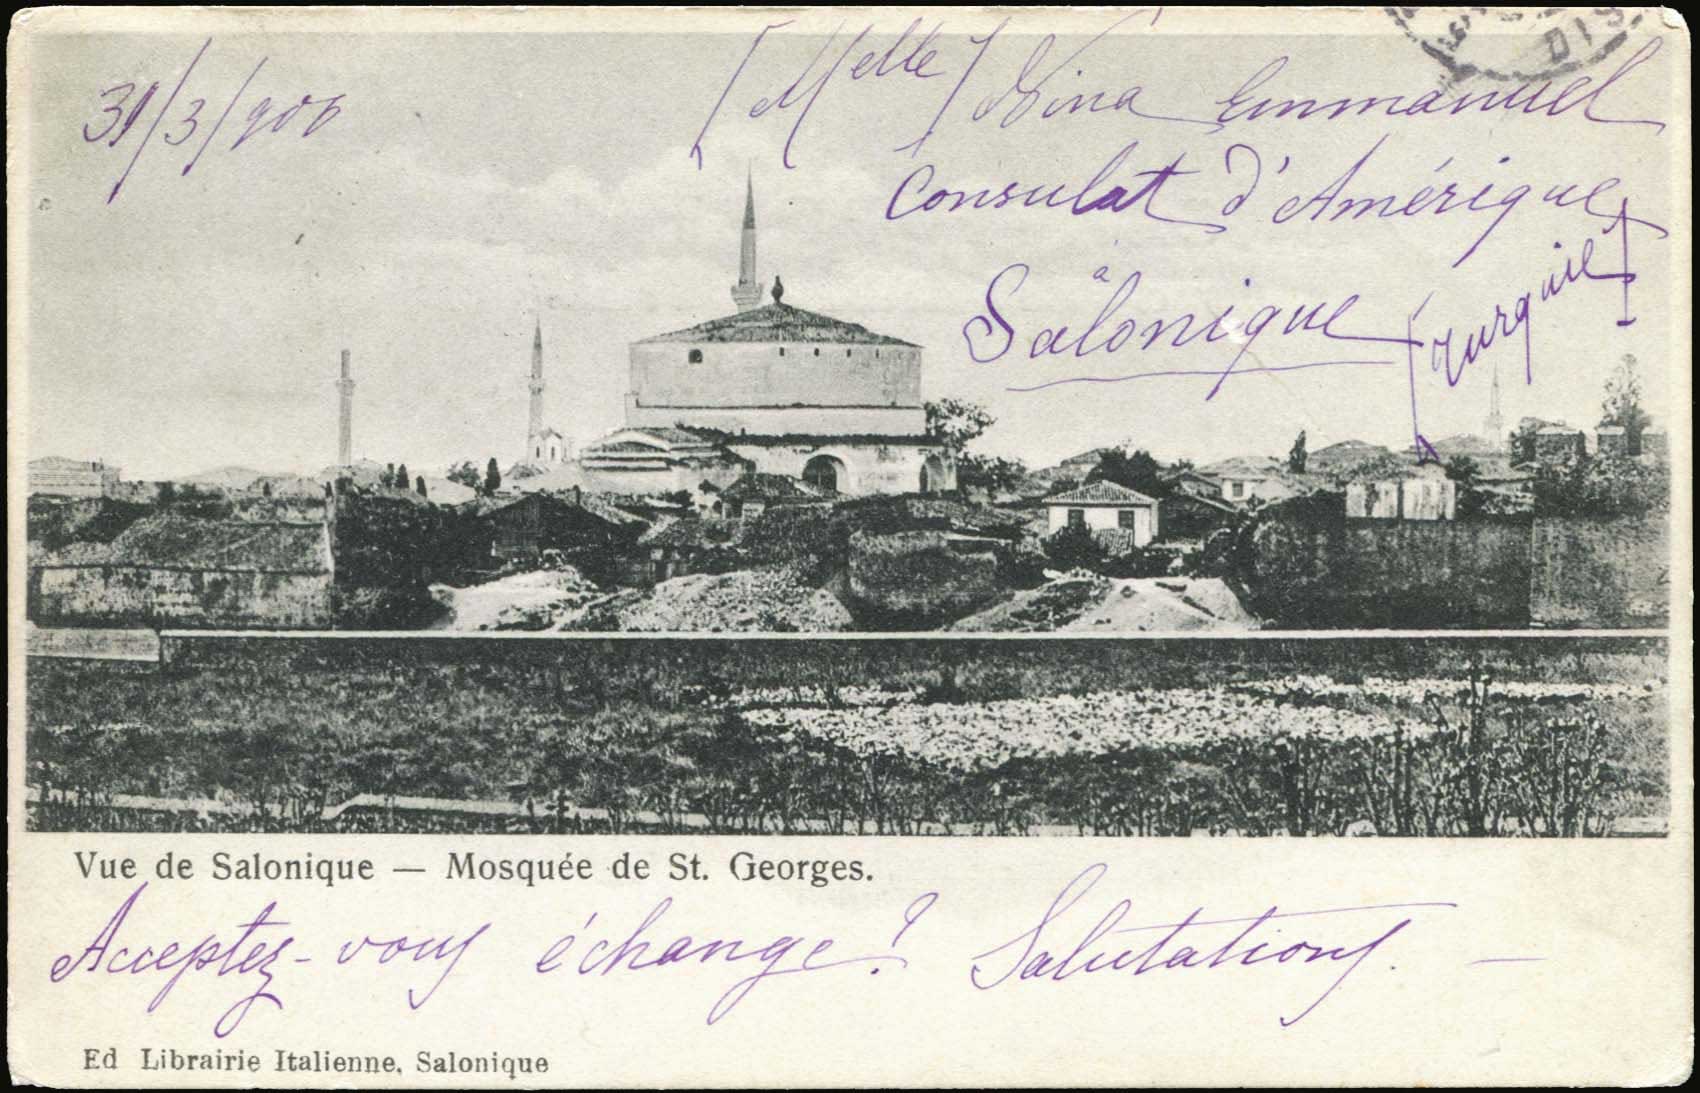 31/3/906
[Melle] Nina Emmanuel
Consulat d'Amérique
à
Salonique [Turquie]
Vue de Salonique — Mosquée de St. Georges.
Acceptez-vous échange? Salutations. —
Ed Librairie Italienne, Salonique